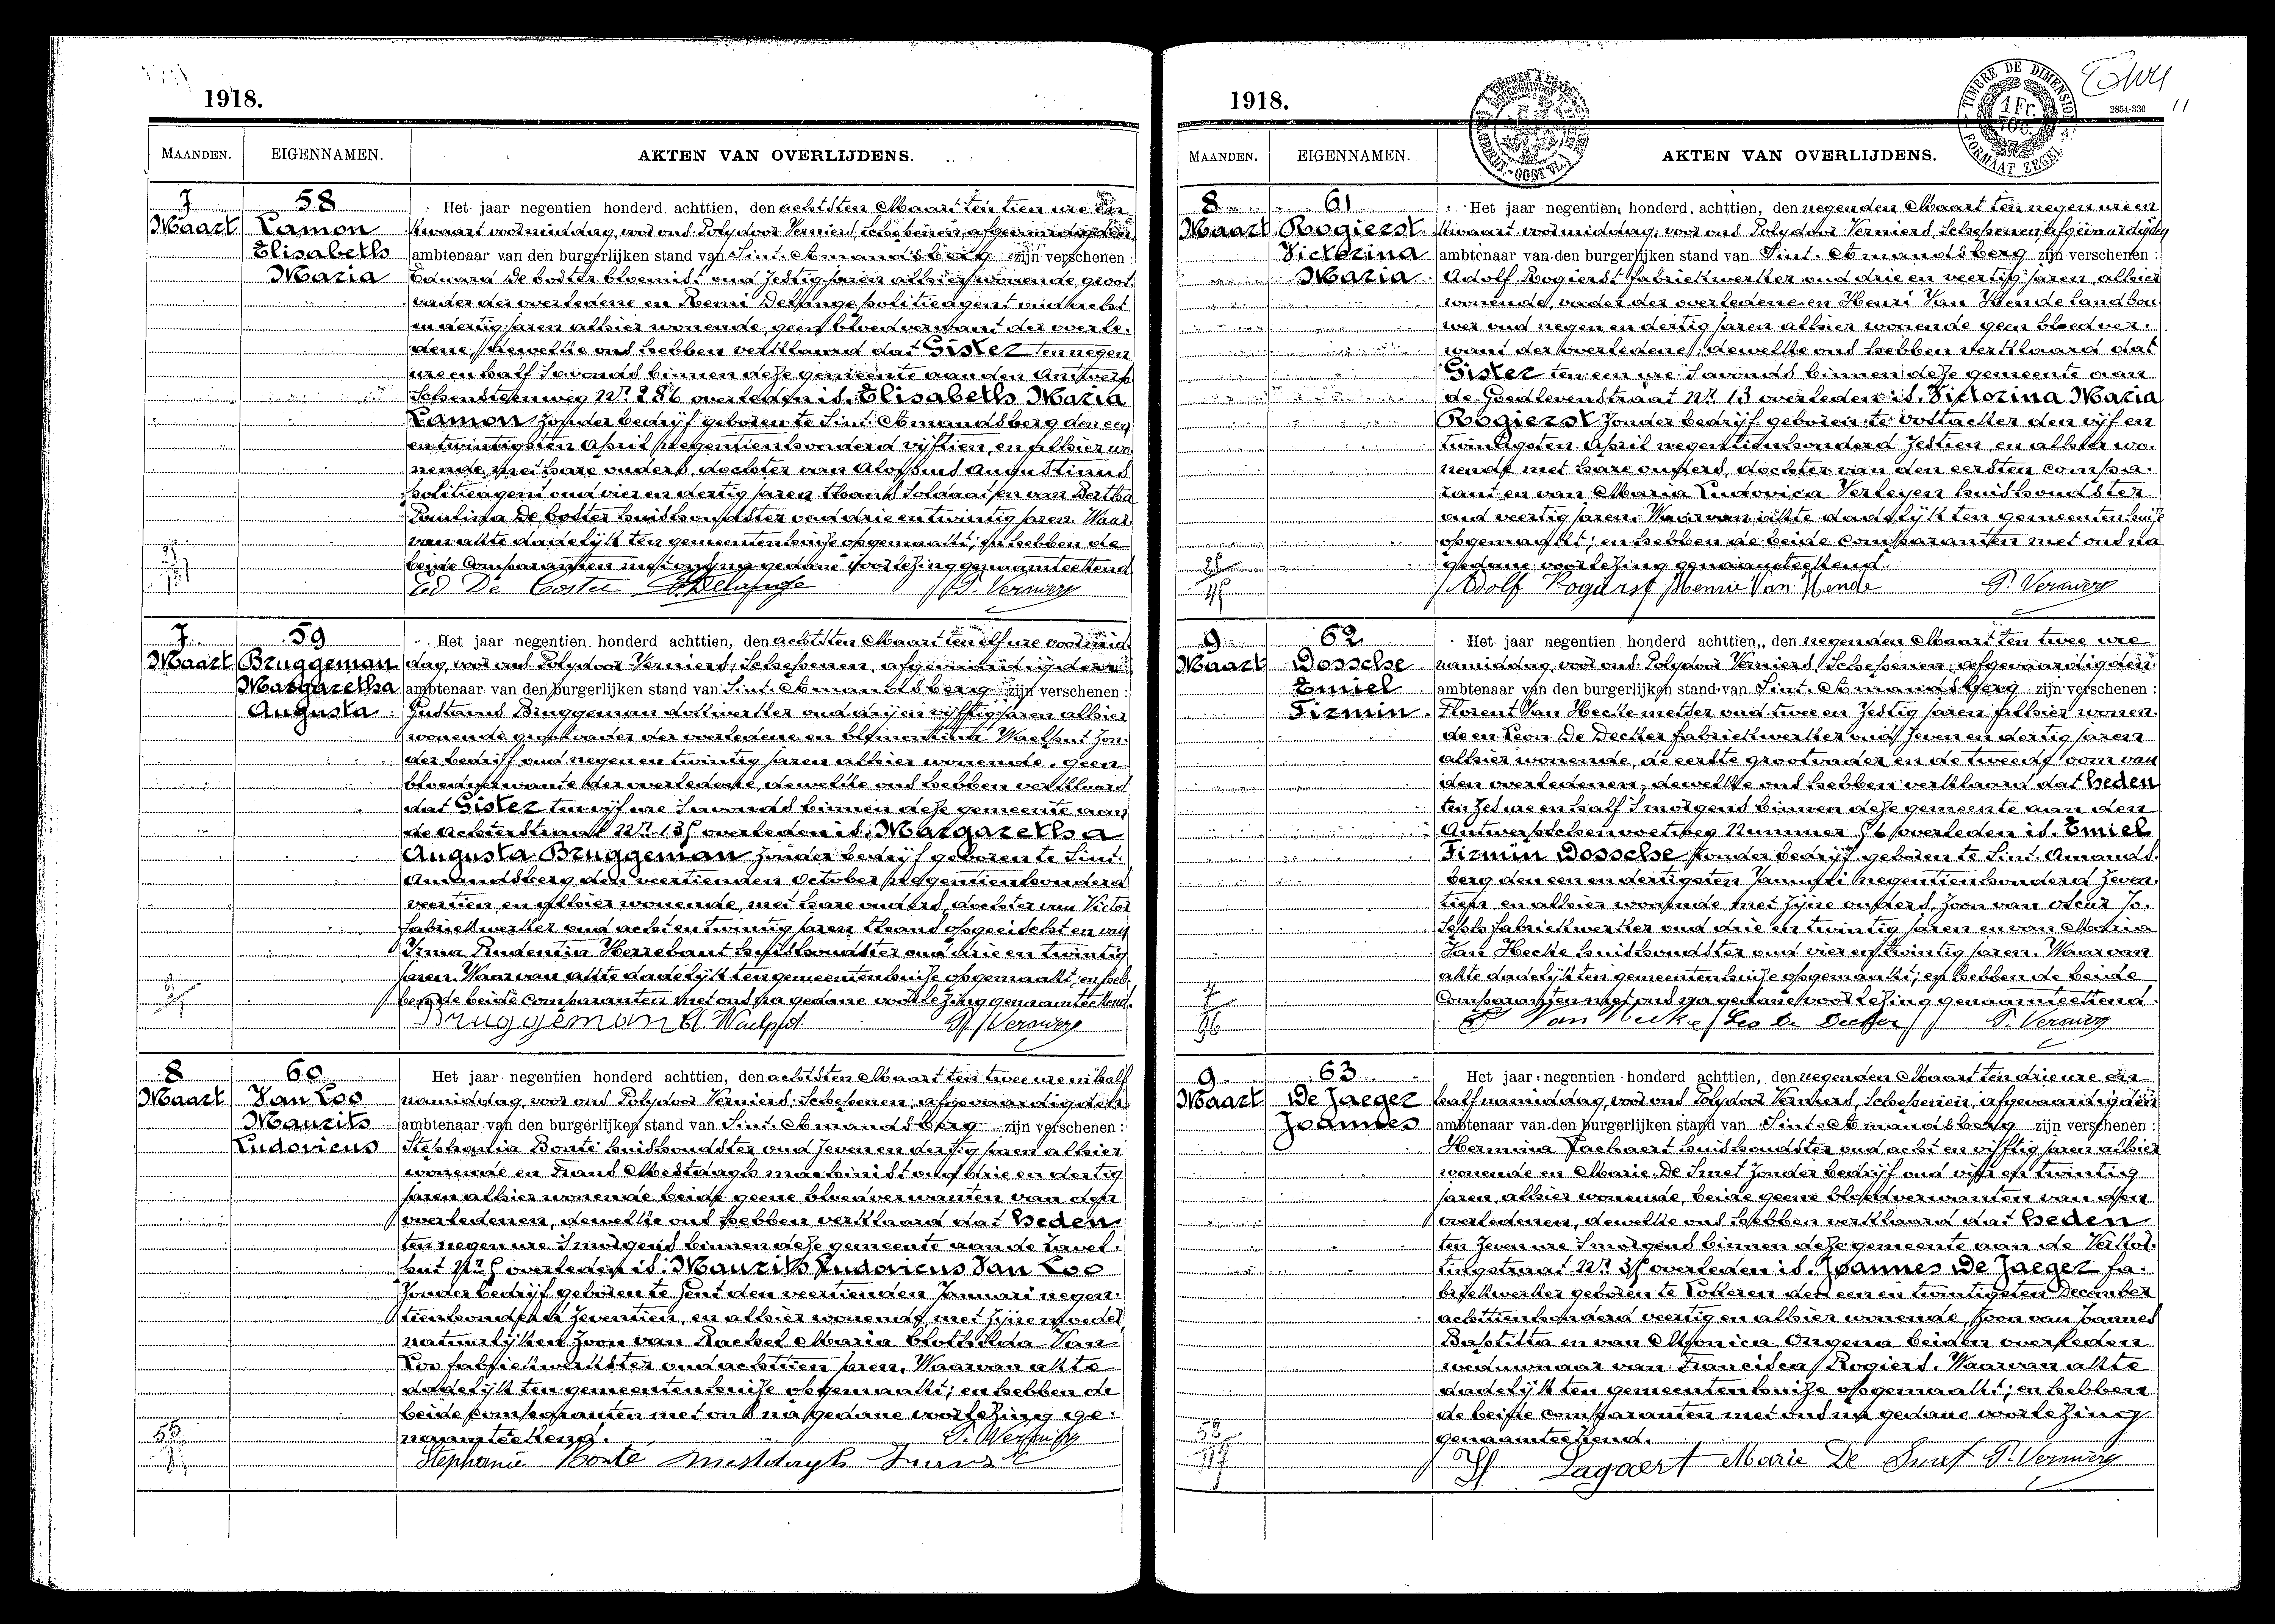 1918.
MAANDEN. EIGENNAMEN. AKTEN VAN OVERLIJDENS.
7 58 Het jaar negentien honderd achttien, den achtsten Maart ten tien ure en
Maart Lamon kwaart voormiddag, voor ons Polydoor Verniers, Schepenen, afgevaardigden
Elisabeth ambtenaar van den burgerlijken stand van Sint-Amandsberg zijn verschenen :
Maria Eduard De Coster bloemist oud zestig jaren alhier wonende, groot
vader der overledene en Remi Delange politieagent oud acht
en dertig jaren alhier wonende, geen bloedverwant der overle-
dene, dewelke ons hebben verklaard dat Gister ten negen
ure en half 's avonds binnen deze gemeente aan den Antwerp
schensteenweg Nr 286 overleden is. Elisabeth Maria
Lamon zonder bedrijf geboren te Sint-Amandsberg den een
en twintigsten April negentienhonderd vijftien, en alhier wo
nende, met hare ouders, dochter van Aloysius Augustinus
politieagent oud vier en dertig jaren thans Soldaat en van Bertha
Paulina De Coster huishoudster oud drie en twintig jaren. Waar
van akte dadelijk ten gemeentenhuize opgemaakt; en hebben de
beide Comparanten met ons na gedane voorlezing genaamteekend.
Ed De Coster P. Verniers
7 59 Het jaar negentien honderd achttien, den achtsten Maart ten elf ure voormid
Maart Bruggeman dag, voor ons Polydoor Verniers, Schepenen, afgevaardigden
Margaretha ambtenaar van den burgerlijken stand van Sint-Amandsberg zijn verschenen :
Augusta Gustavus Bruggeman dokwerker oud drij en vijftig jaren alhier
wonende grootvader der overledene en Clementina Waelput zon-
der bedrijf oud negen en twintig jaren alhier wonende, geen
bloedverwante der overledene, dewelke ons hebben verklaard
dat Gister ten vijf ure 's avonds binnen deze gemeente aan
de Achterstraat Nr overleden is: Margaretha
Augusta Bruggeman zonder bedrijf geboren te Sint-
Amandsberg den veertienden October negentienhonderd
veertien, en alhier wonende, met hare ouders, dochter van Victor
fabriekwerker oud acht en twintig jaren thans opgeeischt en van
Irma Prudentia Herrebaut huishoudster oud drie en twintig
jaren. Waarvan akte dadelijk ten gemeentenhuize opgemaakt; en heb-
ben de beide Comparanten met ons na gedane voorlezing genaamteekend.
Bruggeman Cl. Waelput P. Verniers
8 60 Het jaar negentien honderd achttien, den achtsten Maart ten twee ure en half
Maart Van Loo namiddag, voor ons Polydoor Verniers, Schepenen, afgevaardigden
Maurits ambtenaar van den burgerlijken stand van Sint-Amandsberg zijn verschenen :
Ludovicus Stephania Bonte huishoudster oud zeven en dertig jaren alhier
wonende en Frans Mestdagh machinist oud drie en dertig
jaren alhier wonende beide geene bloedverwanten van den
overledenen, dewelke ons hebben verklaard dat heden
ten negen ure 's morgens binnen deze gemeente aan de Zavel-
put overleden is: Maurits Ludovicus Van Loo
zonder bedrijf geboren te Gent den veertienden Januari negen-
tienhonderd zeventien, en alhier wonende, met zijne moeder,
natuurlijken zoon van Rachel Maria Clothilda Van
Loo fabriekwerkster oud achttien jaren. Waarvan akte
dadelijk ten gemeentenhuize opgemaakt; en hebben de
beide comparanten met ons na gedane voorlezing ge-
naamteekend. P. Verniers
Stephanie Bonte Mestdagh Frans
1918.
TIMBRE DE DIMENSION 1 Fr. FORMAAT ZEGEL
2854-336
11
MAANDEN. EIGENNAMEN. AKTEN VAN OVERLIJDENS.
8 61 Het jaar negentien honderd achttien, den negenden Maart ten negen ure en
Maart Rogierst kwaart voormiddag, voor ons Polydoor Verniers, Schepenen, afgevaardigden
Victorina ambtenaar van den burgerlijken stand van Sint-Amandsberg zijn verschenen :
Maria Adolf Rogierst fabriekwerker oud drie en veertig jaren, alhier
wonende, vader der overledene en Henri Van Hende landbou
wer oud negen en dertig jaren alhier wonende geen bloedver-
want der overledene, dewelke ons hebben verklaard dat
Gister ten een ure 's avonds binnen deze gemeente aan
de Goedlevenstraat Nr 13 overleden is. Victorina Maria
Rogierst zonder bedrijf geboren te Oostacker den vijf en
twintigsten April negentienhonderd zestien, en alhier wo-
nende met hare ouders, dochter van den eersten compa-
rant en van Maria Ludovica Verleyen huishoudster
oud veertig jaren. Waarvan akte dadelijk ten gemeentenhuize
opgemaakt; en hebben de beide Comparanten met ons na
gedane voorlezing genaamteekend.
Adolf Rogierst Henrie Van Hende P. Verniers
9 62 Het jaar negentien honderd achttien, den negenden Maart ten twee ure
Maart Dossche namiddag, voor ons Polydoor Verniers, Schepenen, afgevaardigden
Emiel ambtenaar van den burgerlijken stand van Sint-Amandsberg zijn verschenen :
Firmin Florent Van Hecke metser oud twee en zestig jaren alhier wonen-
de en Leon De Decker fabriekwerker oud zeven en dertig jaren
alhier wonende, de eerste grootvader en de tweede oom van
den overledenen, dewelke ons hebben verklaard dat heden
ten zes ure en half 's morgens binnen deze gemeente aan den
Antwerpschenvoetweg Nummer overleden is. Emiel
Firmin Dossche zonder bedrijf geboren te Sint-Amands-
berg den een en dertigsten Januari negentienhonderd zeven-
tien, en alhier wonende met zijne ouders, zoon van Oscar Jo-
seph fabriekwerker oud drie en twintig jaren en van Maria
Van Hecke huishoudster oud vier en twintig jaren. Waarvan
akte dadelijk ten gemeentenhuize opgemaakt; en hebben de beide
Comparanten met ons na gedane voorlezing genaamteekend.
Van Hecke Leo De Decker P. Verniers
9 63 Het jaar negentien honderd achttien, den negenden Maart ten drie ure en
Maart De Jaeger half namiddag, voor ons Polydoor Verniers, Schepenen, afgevaardigden
Joannes ambtenaar van den burgerlijken stand van Sint-Amandsberg zijn verschenen :
Hermina Lachaert huishoudster oud acht en vijftig jaren alhier
wonende en Marie De Smet zonder bedrijf oud vijf en twintig
jaren, alhier wonende, beide geene bloedverwanten van den
overledenen, dewelke ons hebben verklaard dat heden
ten zeven ure 's morgens binnen deze gemeente aan de Verkor-
tingstraat Nr overleden is. Joannes De Jaeger fa-
briekwerker geboren te Lotteren den een en twintigsten December
achttienhonderd veertig en alhier wonende, zoon van Joannes
Baptista en van Monica Ongena beiden overleden
weduwnaar van Francisca Rogiers. Waarvan akte
dadelijk ten gemeentenhuize opgemaakt; en hebben
de beide comparanten met ons na gedane voorlezing
genaamteekend.
Lagaert Marie De Smet P. Verniers